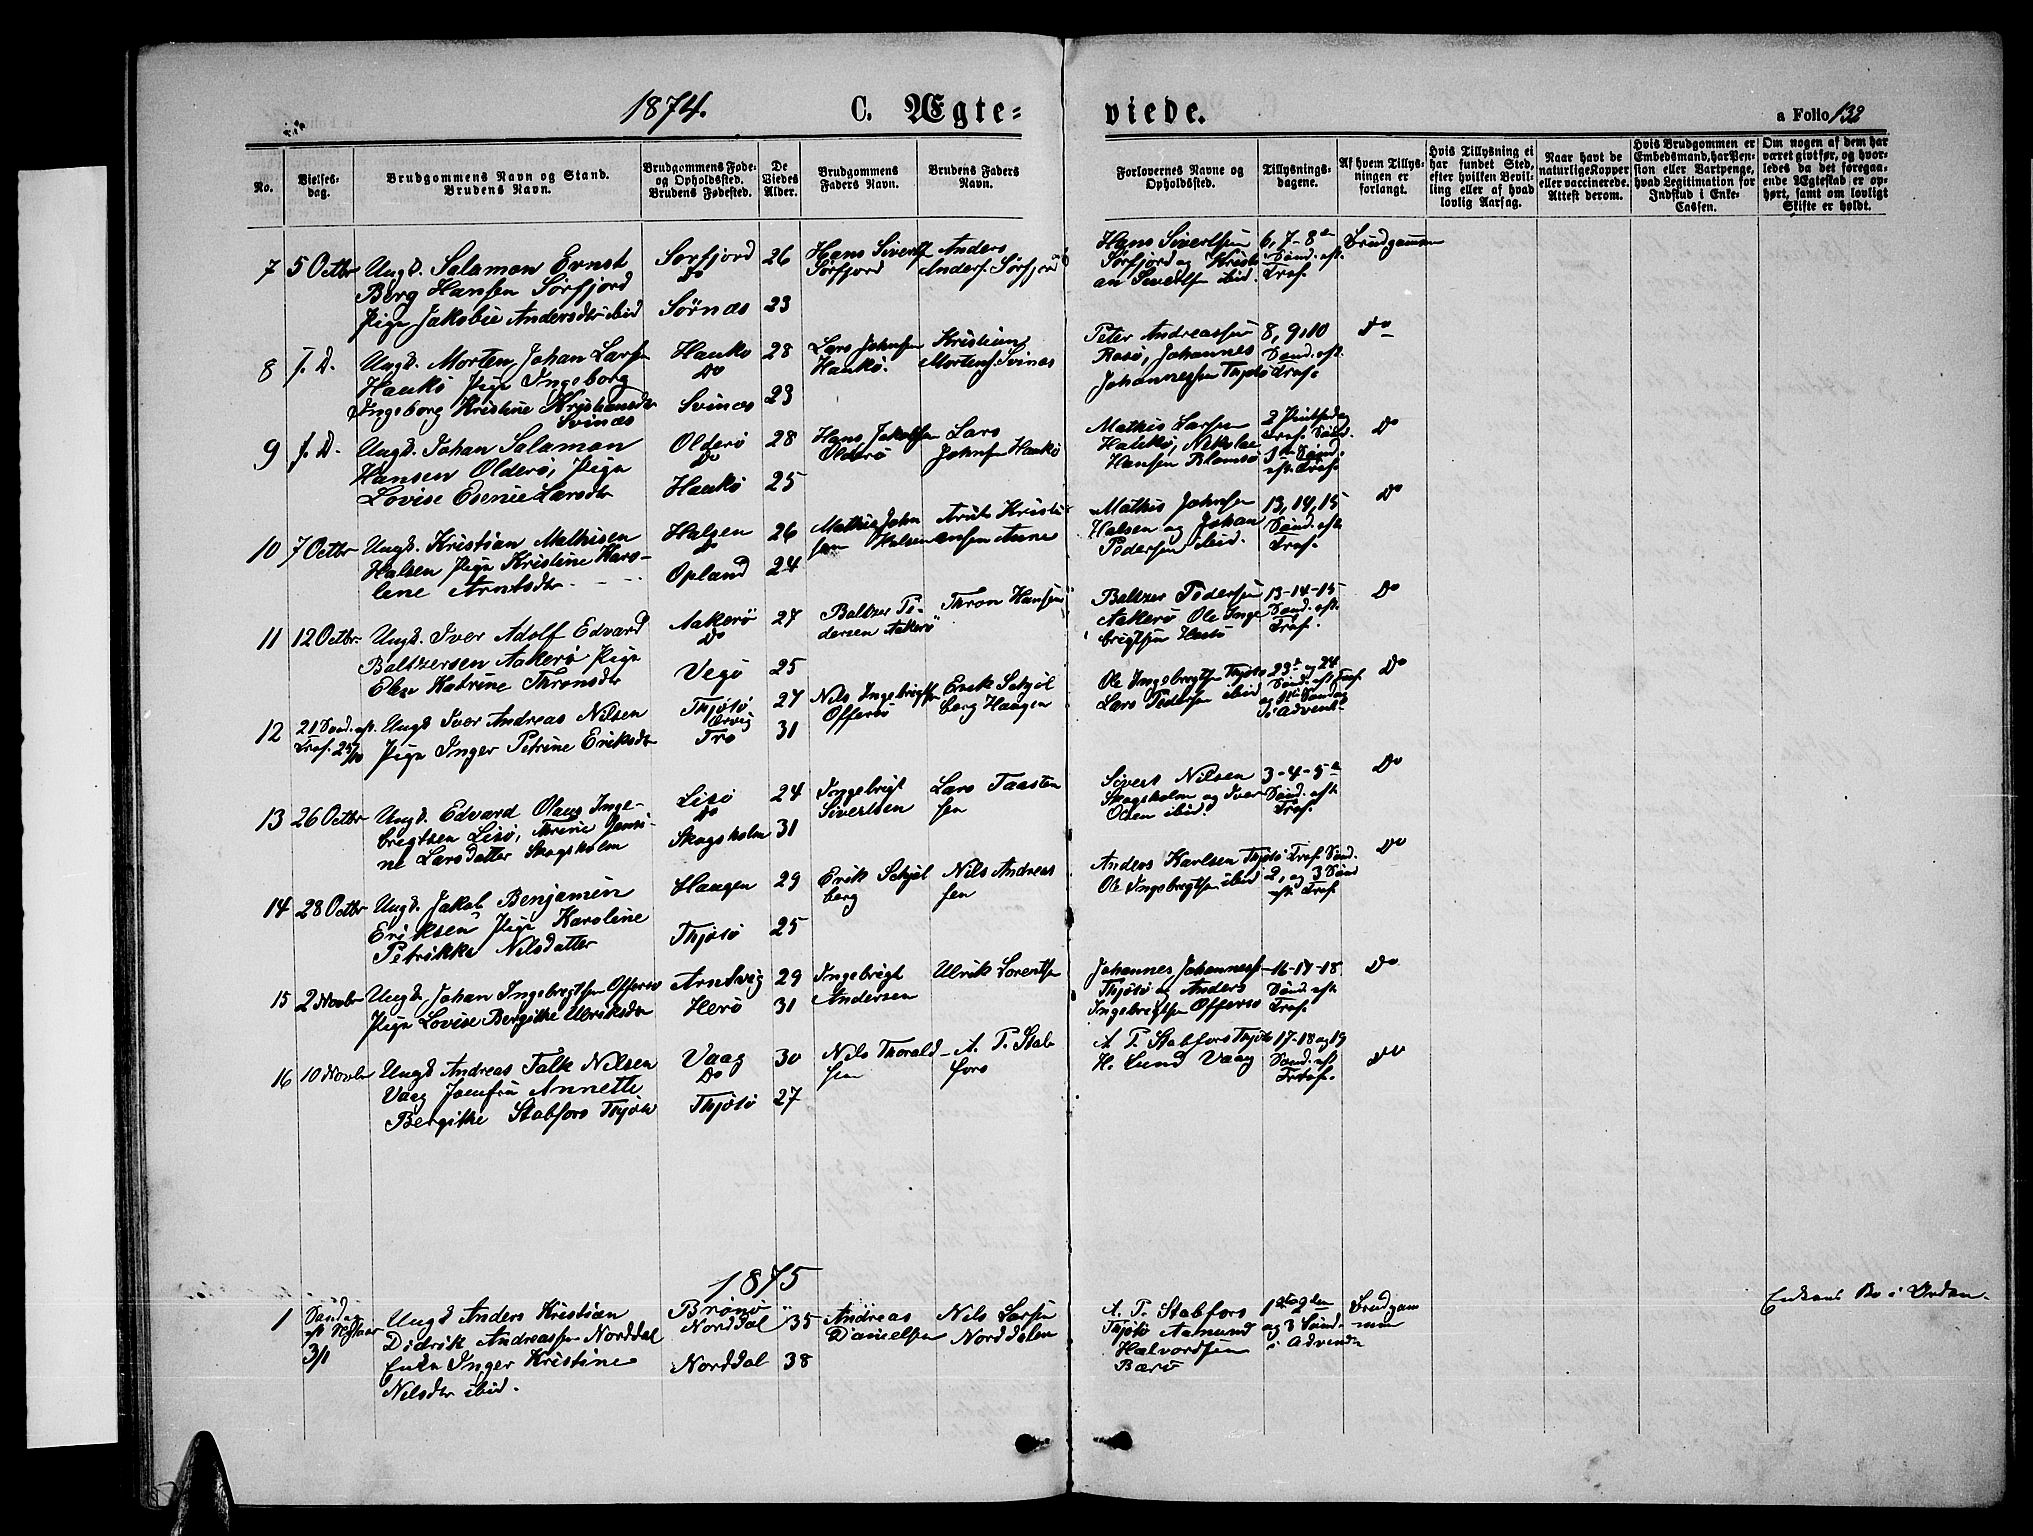 1874. C. Ægte=
viede. a Folio 132
No.
Vielses-
dag.
Brudgommens Navn og Stand.
Brudens Navn.
Brudgommens Føde-
og Opholdssted.
Brudens Fødested.
De
Viedes
Alder.
Brudgommens
Faders Navn.
Brudens Faders
Navn.
Forlovernes Navne og
Opholdssted.
Tillysnings-
dagene.
Af hvem Tillys-
ningen er
forlangt.
Hvis Tillysning ei
har fundet Sted,
efter hvilken Bevil-
ling eller af hvad
lovlig Aarsag.
Naar havt de
naturlige Kopper
eller vaccinerede.
Attest derom.
Hvis Brudgommen er
Embedsmand, har Pen-
sion eller Vartpenge,
hvad Legitimation for
Indskud i Enke-
Cassen.
Om nogen af dem har
været gift før, og hvor-
ledes da det foregaa-
ende Ægteskab er op-
hørt, samt om lovligt
Skifte er holdt.
7 5 Octbr
Ungk. Salamon Ernst
Berg Hansen Sørfjord
Pige Jakobie Andersdtr ibid
Sørfjord
Do
Sørnæs
26
23
Hans Siverts
Sørfjord
Anders
Anders. Sørfjord
Hans Sivertsen
Sørfjord og Kristi
an Sivertsen ibid.
6, 7 - 8de
Sønd. eft.
Tref.
Brudgommen
8 f. D.
Ungk. Morten Johan Lars
Haukø Pige Ingeborg
Ingeborg Kristine Kristiansdtr
Svinæs
Haukø
Do
Svinæs
28
23
Lars Johnsen
Haukø.
Kristian
Mortens. Svinæs
Peter Andreassen
Rosø, Johannes
Johannessen Thjøtø
8, 9, 10
Sønd. eft.
Tref.
Do
9 f. D.
Ungk. Johan Salamon
Hansen Olderø, Pige
Lovise Esenie Larsdtr
Olderø
Do
Haukø
28
25
Hans Jakobsen
Olderø
Lars
Johnsen Haukø
Mathis Larsen
Haukø, Nikolai
Hansen Blomsø
2 Pintsedag
Tref. Sønd.
1ste Sønd.
eft. Tref.
Do
10 7 Octbr
Ungk. Kristian Mathisen
Halsen Pige Kristine Karo-
lene Arntsdtr
Halsen
Do
Opland
26
24
Mathis John
sen Halsen
Arnt Kristi-
ansen Aune
Mathis Johnsen
Halsen og Johan
Pedersen ibid.
13, 14, 15
Sønd. eft.
Tref.
Do
11 12 Octbr
Ungk. Iver Adolf Edvard
Baltzersen Aakerø Pige
Else Katrine Thronsdtr
Aakerø
Do
Vegø
27
25
Baltzer Pe-
dersen Aakerø
Thron Hansen
Baltzer Pedersen
Aakerø Ole Inge
brigtsen Hestø
13-14-15
Sønd. eft.
Tref.
Do
12 21 Sønd. eft.
Tref. 25/10
Ungk Iver Andreas Nilsen
Pige Inger Petrine Eriksdtr
Thjøtø
Tro
27
31
Nils Ingebrigtsen
Offersø
Erik Schjel
berg Haagen
Ole Ingebregtsen Thjøtø
Lars Pedersen ibid
23de og 24
Sønd. eft Tref.
og 1ste Søndag
i Advent
Do
13 26 Octbr
Ungk. Edvard Olaus Inge-
bregtsen Lisø, Thrine Jensi-
ne Larsdatter Skogsholm
Lisø
Do
Skogsholm
24
31
Ingebrigt
Sivertsen
Lars Taasten
sen
Sivert Nilsen
Skogsholm og Iver
Olsen ibid.
3-4-5te
Sønd. eft
Tref.
Do
14 28 Octbr
Ungk. Jakob Benjamin
Eriksen Pige Karoline
Petrikke Nilsdatter
Haagen
Thjøtø
29
25
Erik Schjel
berg
Nils Andreas
sen
Anders Karlsen Thjøtø
Ole Ingebregtsen ibid
Tref. Sønd.
2, og 3 Sønd
eft. Tref.
Do
15 2 Novbr
Ungk. Johan Ingebregtsen Offersø
Pige Lovise Bergithe Ulriksdtr
Arntvig
Herø
29
31
Ingebrigt
Andersen
Ulrik Lorentsen
Johannes Johanness
Thjøtø og Anders
Ingebregtsen Offersø
16-17-18
Sønd. eft
Tref.
Do
16 10 Novbr
Ungk Andreas Falk Nilsen
Vaag Jomfru Annette
Bergithe Stabfors Thjøtø
Vaag
Do
Thjøtø
30
27
Nils Thorald-
sen
A. P. Stab
fors
A. P. Stabfors Thjøtø
H. Lund Vaag
17-18 og 19
Sønd. eft
Tref.
Do
1875
1 Søndag
eft Nytaar
3/1
Ungk Anders Kristian
Didrik Andreassen Norddal
Enke Inger Kristine
Nilsdtr ibid.
Brønø
Norddal
Norddal
35
38
Andreas
Danielsen
Nils Larsen
Norddalen
A. P. Stabfors
Thjøtø Aamund
Halvordsen
Bærø
1ste 2den
og 3 Sønd
i Advent
Brudgom
men
Enkens Bo i Orden.